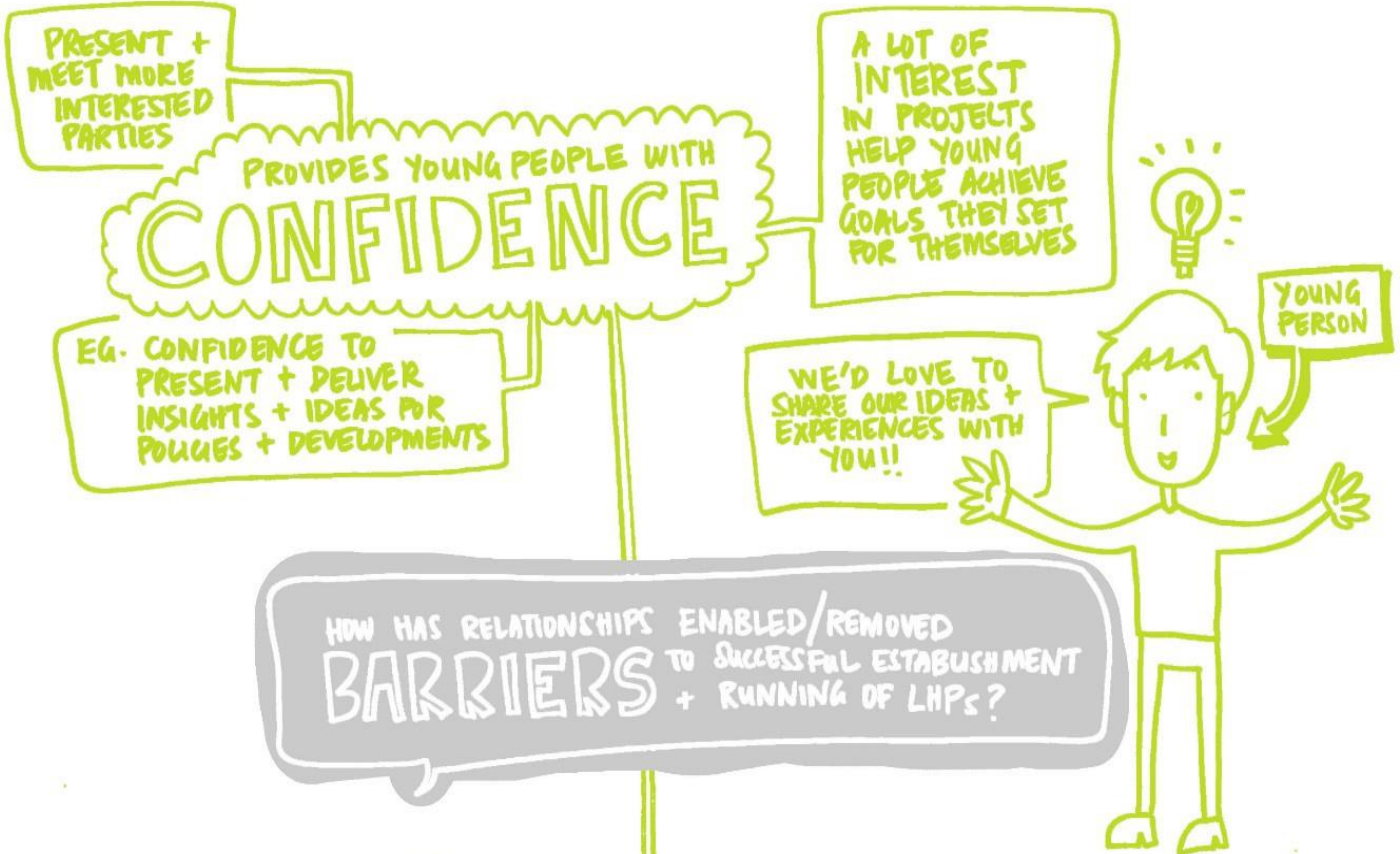 PRESENT +
MEET MORE
INTERESTED
PARTIES
PROVIDES YOUNG PEOPLE WITH
CONFIDENCE
A LOT OF
INTEREST
IN PROJECTS
HELP YOUNG
PEOPLE ACHIEVE
GOALS THEY SET
FOR THEMSELVES
EG. CONFIDENCE TO
PRESENT + DELIVER
INSIGHTS + IDEAS FOR
POLICIES + DEVELOPMENTS
YOUNG
PERSON
WE'D LOVE TO
SHARE OUR IDEAS +
EXPERIENCES WITH
YOU!!
HOW HAS RELATIONSHIPS ENABLED/REMOVED
BARRIERS TO SUCCESSFUL ESTABLISHMENT
+ RUNNING OF LHPs?